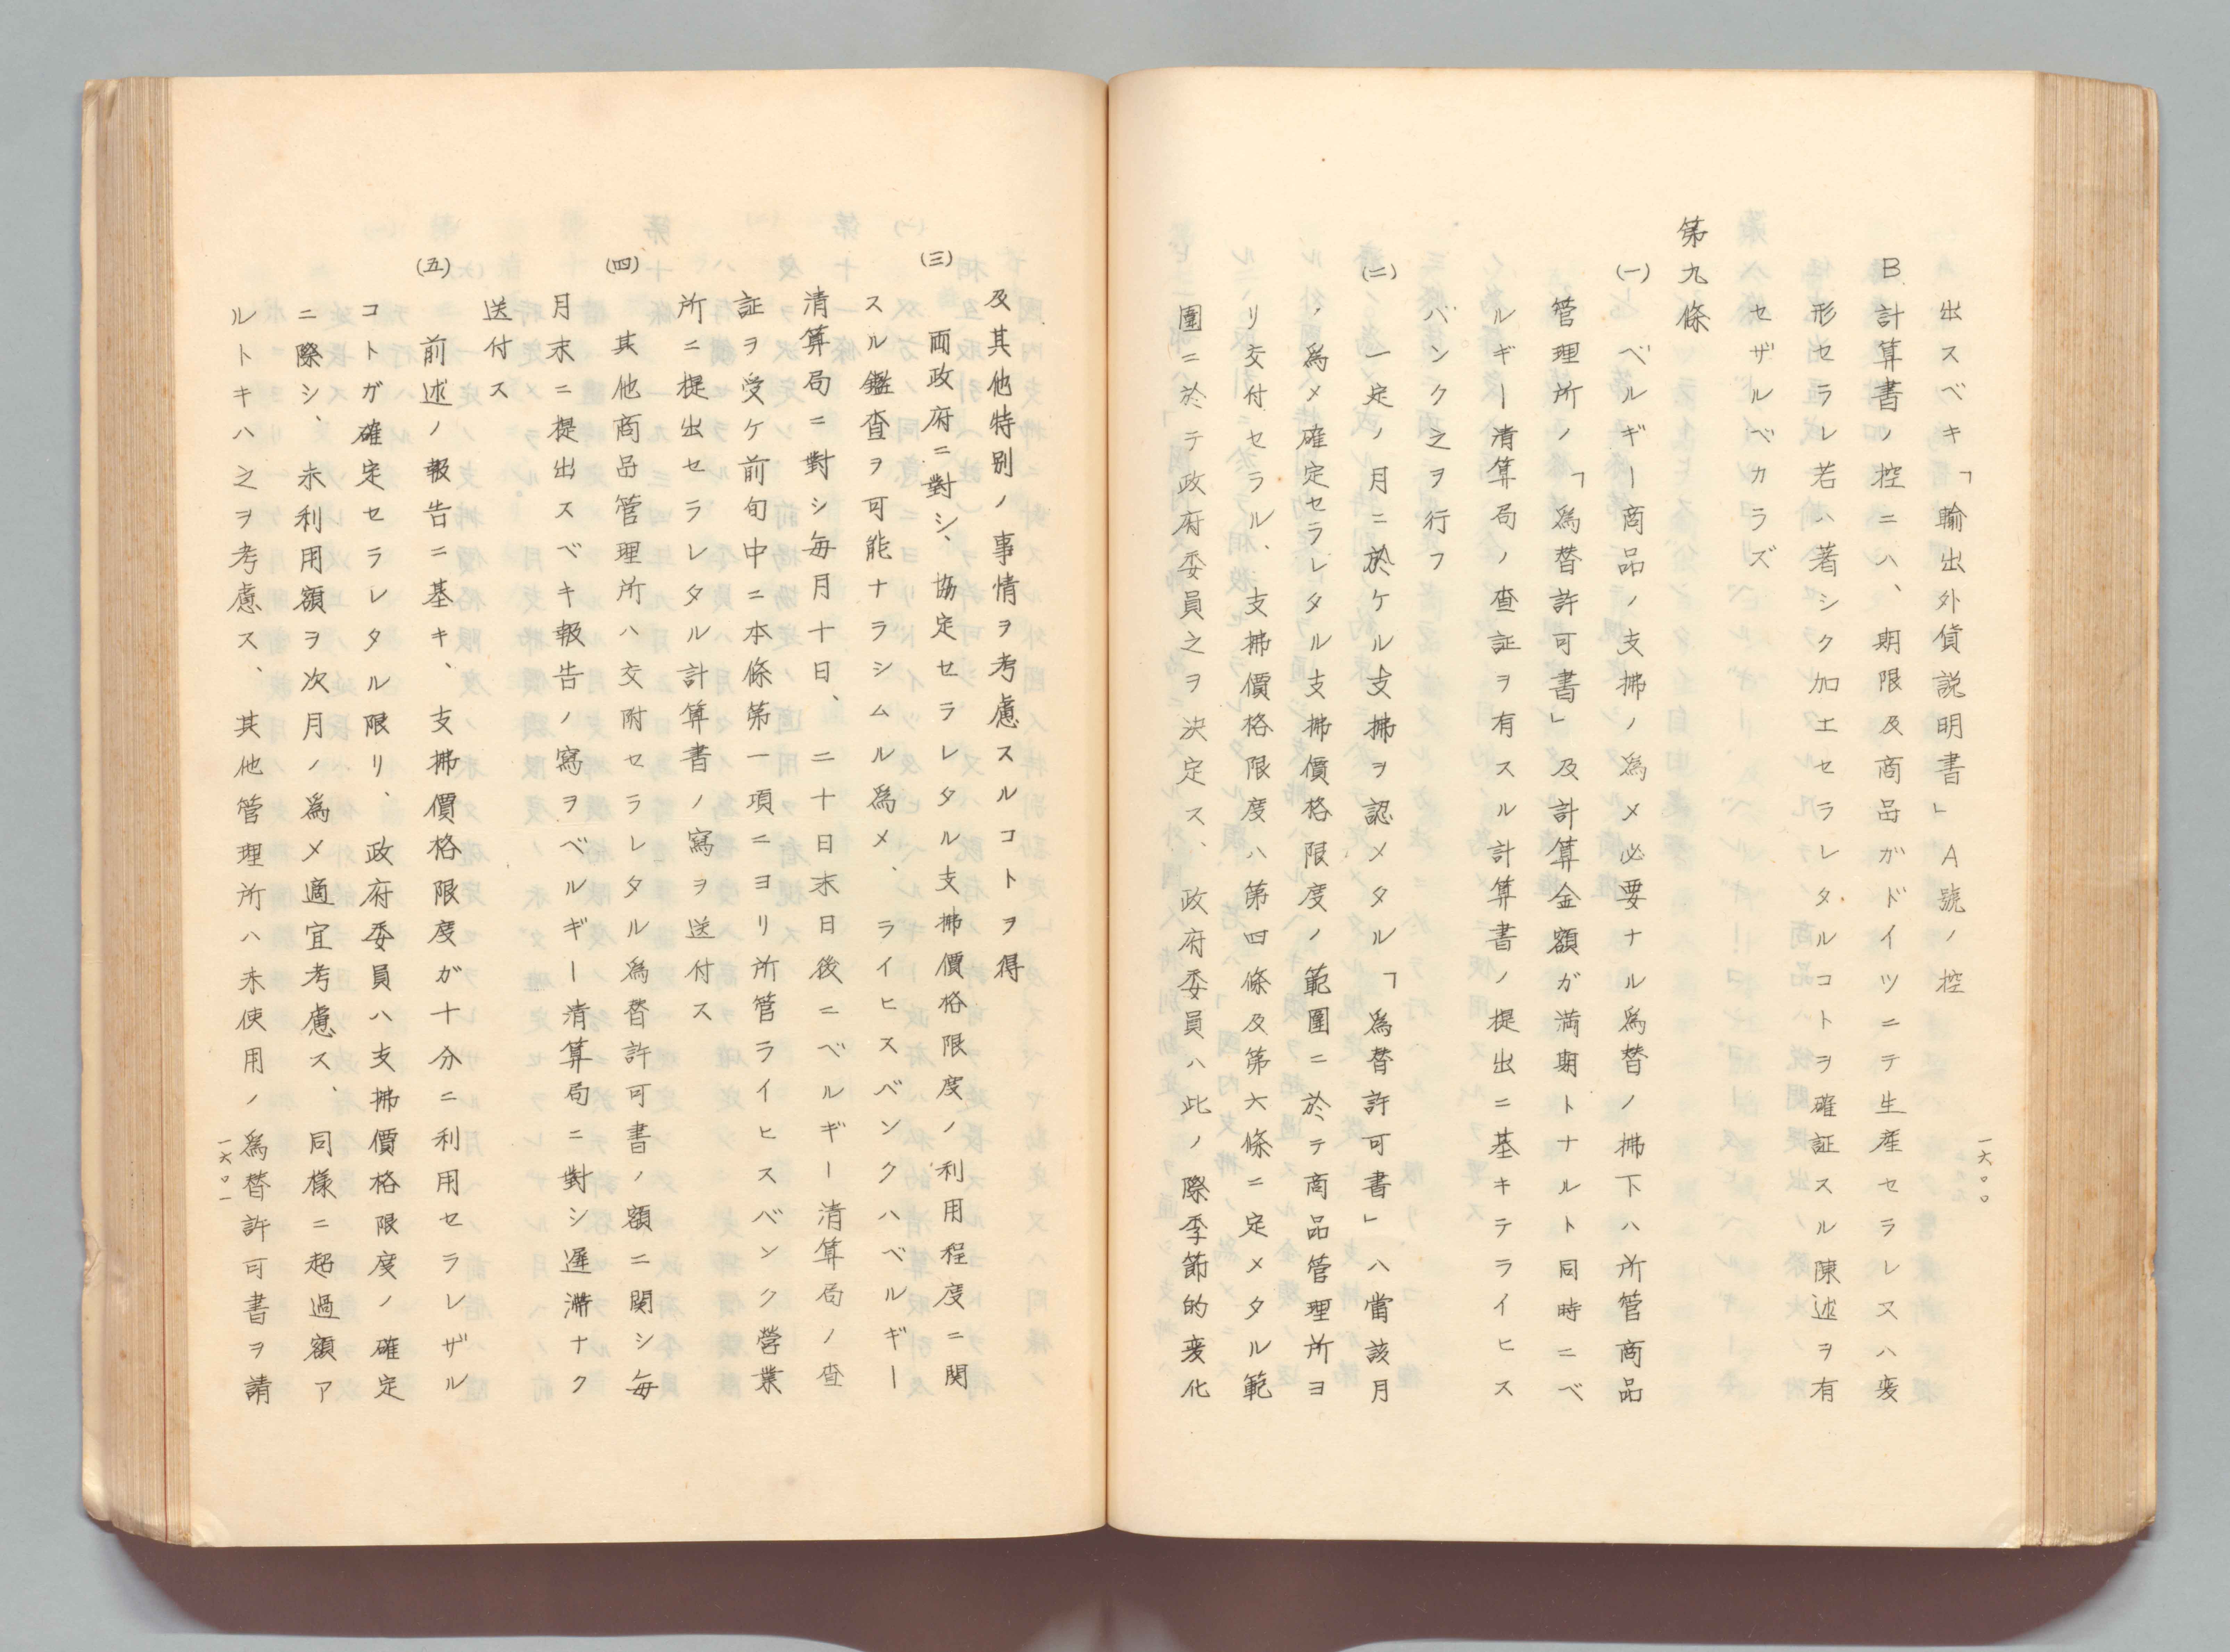 出スベキ「輸出外貨説明書」A號ノ控
B 計算書ノ控ニハ、期限及商品ガドイツニテ生産セラレスハ変
形セラレ若ハ著シク加工セラレタルコトヲ確証スル陳述ヲ有
セザルベカラズ
第九條
(一) ベルギー商品ノ支拂ノ為メ必要ナル為替ノ拂下ハ所管商品
管理所ノ「為替許可書」及計算金額ガ満期トナルト同時ニベ
ルギー清算局ノ査証ヲ有スル計算書ノ提出ニ基キテライヒス
バンク之ヲ行フ
(二) 一定ノ月ニ於ケル支拂ヲ認メタル「為替許可書」ハ當該月
ノ為メ確定セラレタル支拂價格限度ノ範圍ニ於テ商品管理所ヨ
リ交付セラル、支拂價格限度ハ第四條及第六條ニ定メタル範
圍ニ於テ政府委員之ヲ決定ス、政府委員ハ此ノ際季節的変化
一六〇〇
及其他特別ノ事情ヲ考慮スルコトヲ得
(三) 両政府ニ對シ、協定セラレタル支拂價格限度ノ利用程度ニ関
スル鑑査ヲ可能ナラシムル為メ、ライヒスバンクハベルギー
清算局ニ對シ毎月十日、二十日末日後ニベルギー清算局ノ査
証ヲ受ケ前旬中ニ本條第一項ニヨリ所管ライヒスバンク營業
所ニ提出セラレタル計算書ノ寫ヲ送付ス
(四) 其他商品管理所ハ交附セラレタル為替許可書ノ額ニ関シ毎
月末ニ提出スベキ報告ノ寫ヲベルギー清算局ニ對シ遅滞ナク
送付ス
(五) 前述ノ報告ニ基キ、支拂價格限度ガ十分ニ利用セラレザル
コトガ確定セラレタル限リ、政府委員ハ支拂價格限度ノ確定
ニ際シ、未利用額ヲ次月ノ為メ適宜考慮ス、同様ニ超過額ア
ルトキハ之ヲ考慮ス、其他管理所ハ未使用ノ為替許可書ヲ請
一六〇一